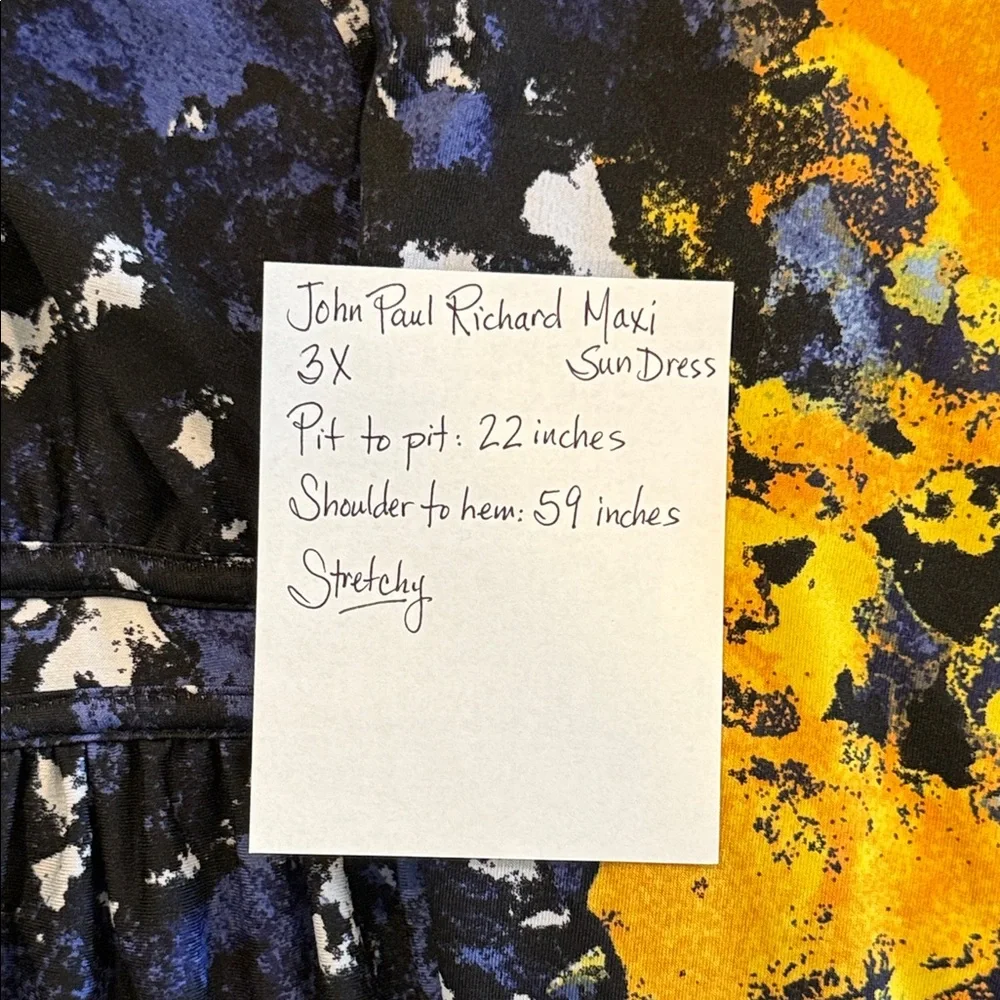 John Paul Richard Maxi
3X Sun Dress
Pit to pit: 22 inches
Shoulder to hem: 59 inches
Stretchy